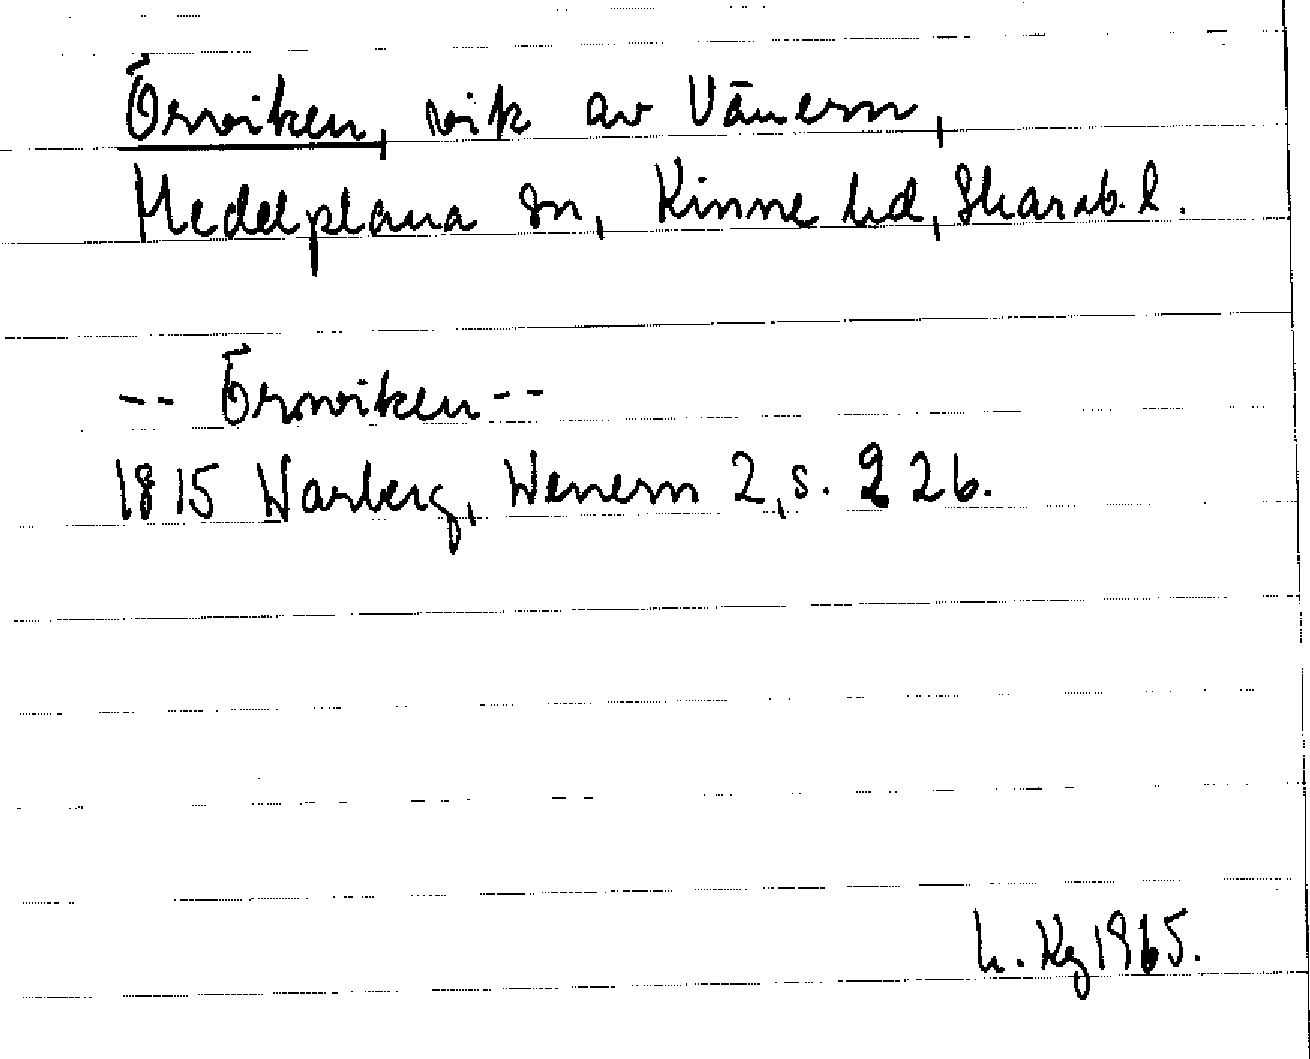 Örviken, vik av Vänern,
Medelplana sn, Kinne hd, Skarab. l.
-- Örnviken --
1815 Warberg, Wenern 2, s. 226.
h. Kg 1965.